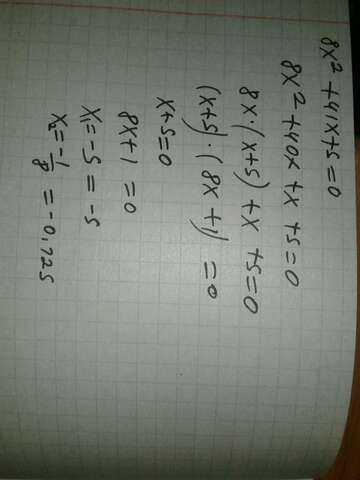 8x² + 41x + 5 = 0
8x² + 40x + x + 5 = 0
8x · (x + 5) + x + 5 = 0
(x + 5) · (8x + 1) = 0
x + 5 = 0
8x + 1 = 0
x₁ = -5 = -5
x₂ = -1/8 = -0,125